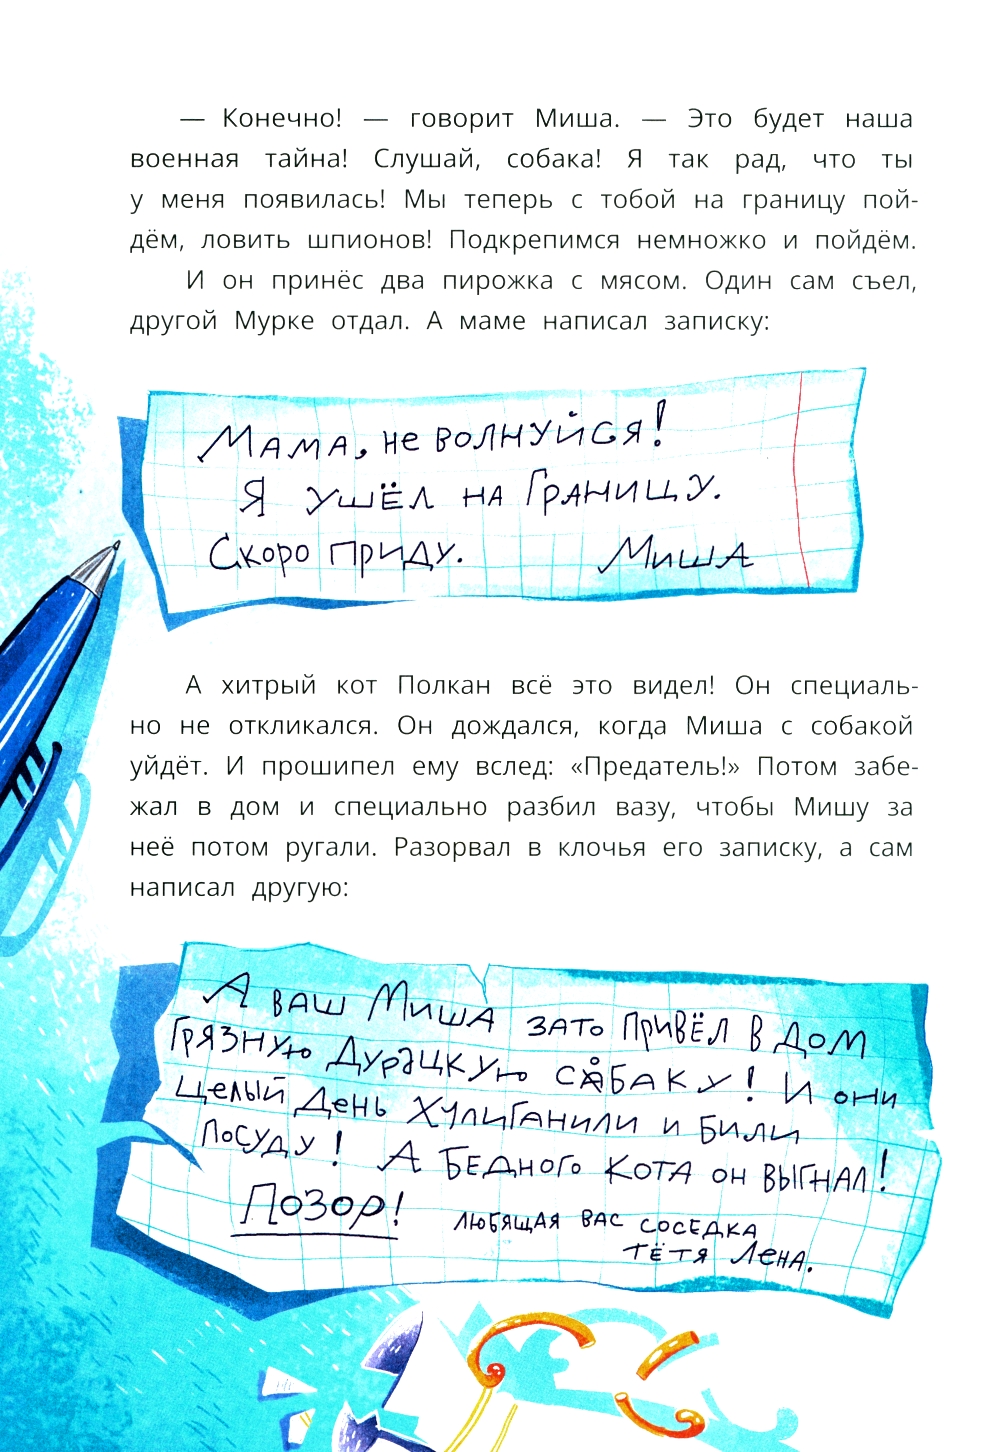 — Конечно! — говорит Миша. — Это будет наша
военная тайна! Слушай, собака! Я так рад, что ты
у меня появилась! Мы теперь с тобой на границу пой-
дём, ловить шпионов! Подкрепимся немножко и пойдём.
И он принёс два пирожка с мясом. Один сам съел,
другой Мурке отдал. А маме написал записку:
Мама, не волнуйся!
Я ушёл на границу.
Скоро приду. Миша
А хитрый кот Полкан всё это видел! Он специаль-
но не откликался. Он дождался, когда Миша с собакой
уйдёт. И прошипел ему вслед: «Предатель!» Потом забе-
жал в дом и специально разбил вазу, чтобы Мишу за
неё потом ругали. Разорвал в клочья его записку, а сам
написал другую:
А ваш Миша зато привёл в дом
грязную дурацкую сабаку! И они
целый день хулиганили и били
посуду! А бедного кота он выгнал!
Позор! любящая вас соседка
тётя Лена.